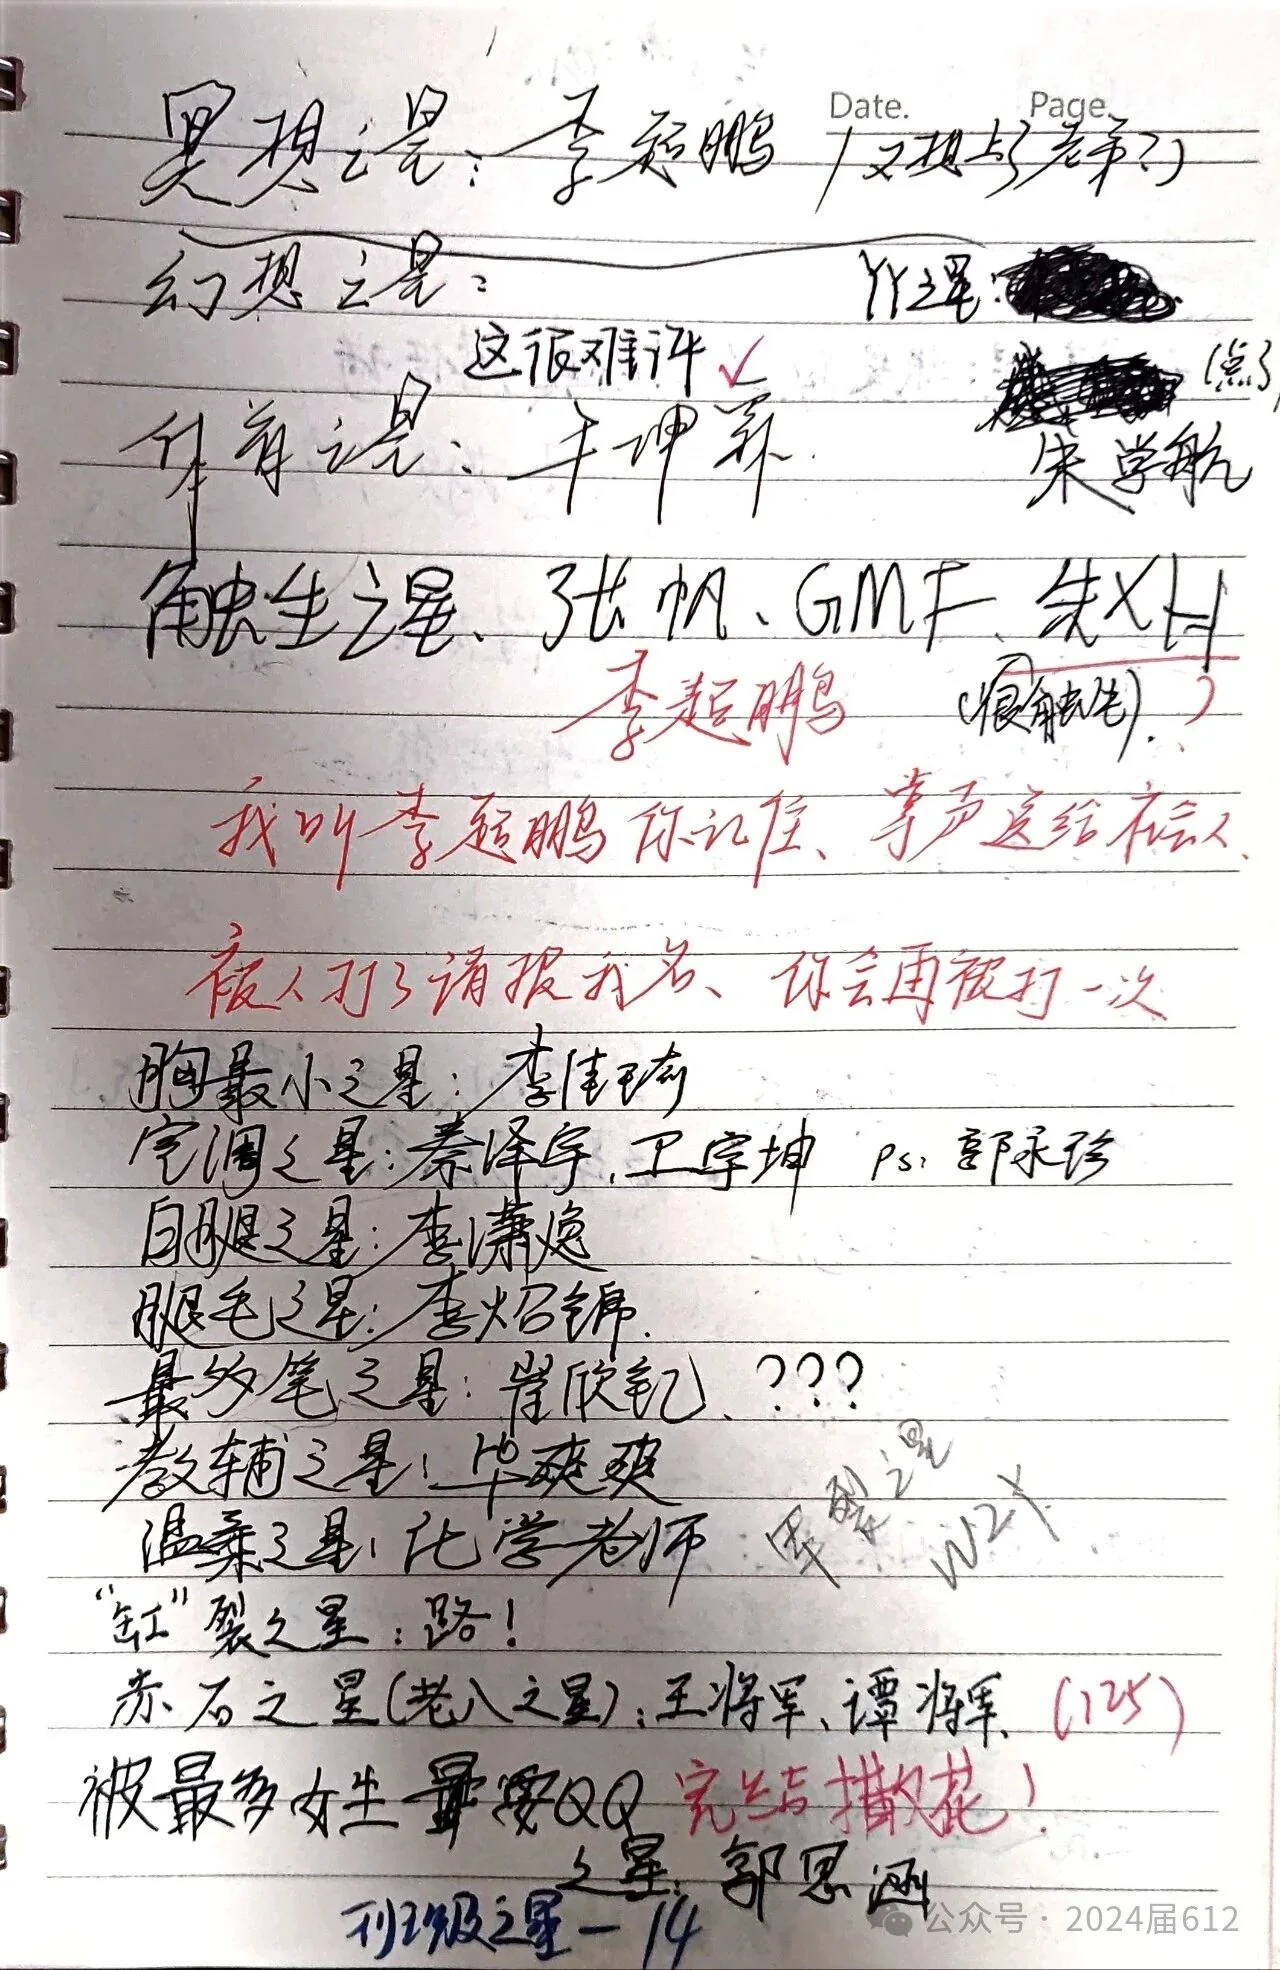 Date. Page.
冥想之星：李超鹏（又想上了老弟？）
幻想之星：
YY之星：
这很难评 ✓
体育之星：王坤
（点了
宋学航
触生之星、张帆、GMF、朱XH
李超鹏 （很触生）.
我叫李超鹏你记住、掌声送给社会人、
被人打了请报我名、你会再被打一次
胸最小之星：李佳琦
空调之星：秦泽宇、卫宇坤 ps：郭永珍
白腿之星：李潇逸
腿毛之星：李炤锦.
最多笔之星：崔欣 、???
教辅之星：毕爽爽
温柔之星：化学老师
甲裂之星
WZY
“缸”裂之星：路！
赤石之星（老八之星）：王将军、谭将军、（125）
被最多女生 要QQ 完结撒花！
之星：郭思涵
班级之星－14
公众号·2024届612